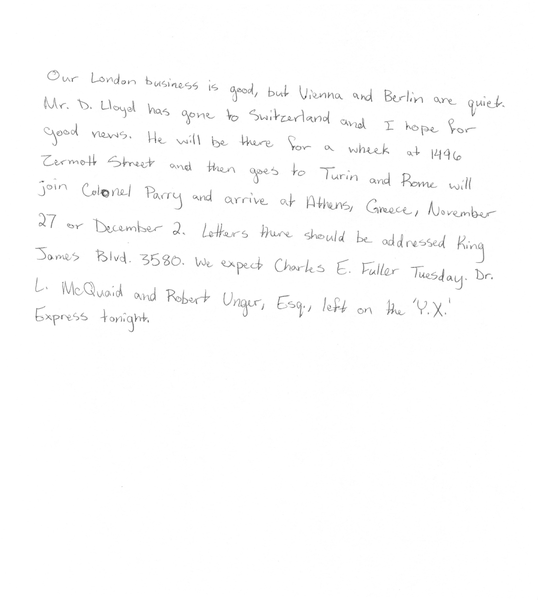 Our London business is good, but Vienna and Berlin are quiet.
Mr. D. Lloyd has gone to Switzerland and I hope for
good news. He will be there for a wheek at 1496
Zermott Street and then goes to Turin and Rome will
join Colonel Parry and arrive at Athens, Greece, November
27 or December 2. Letters there should be addressed King
James Blvd. 3580. We expect Charles E. Fuller Tuesday. Dr.
L. McQuaid and Robert Unger, Esq., left on the 'Y.X.'
Express tonight.